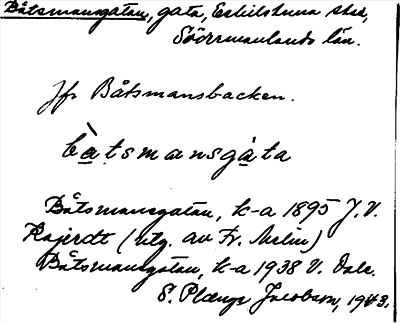 Båtsmansgatan, gata, Eskilstuna stad,
Södermanlands län.
Jfr Båtsmansbacken.
bàtsmansgàta
Båtsmansgatan, k-a 1895 J. V.
(utg. av Fr. Melin)
Båtsmansgatan, k-a 1938 V. Dale.
S. Plænge Jacobson, 1943.